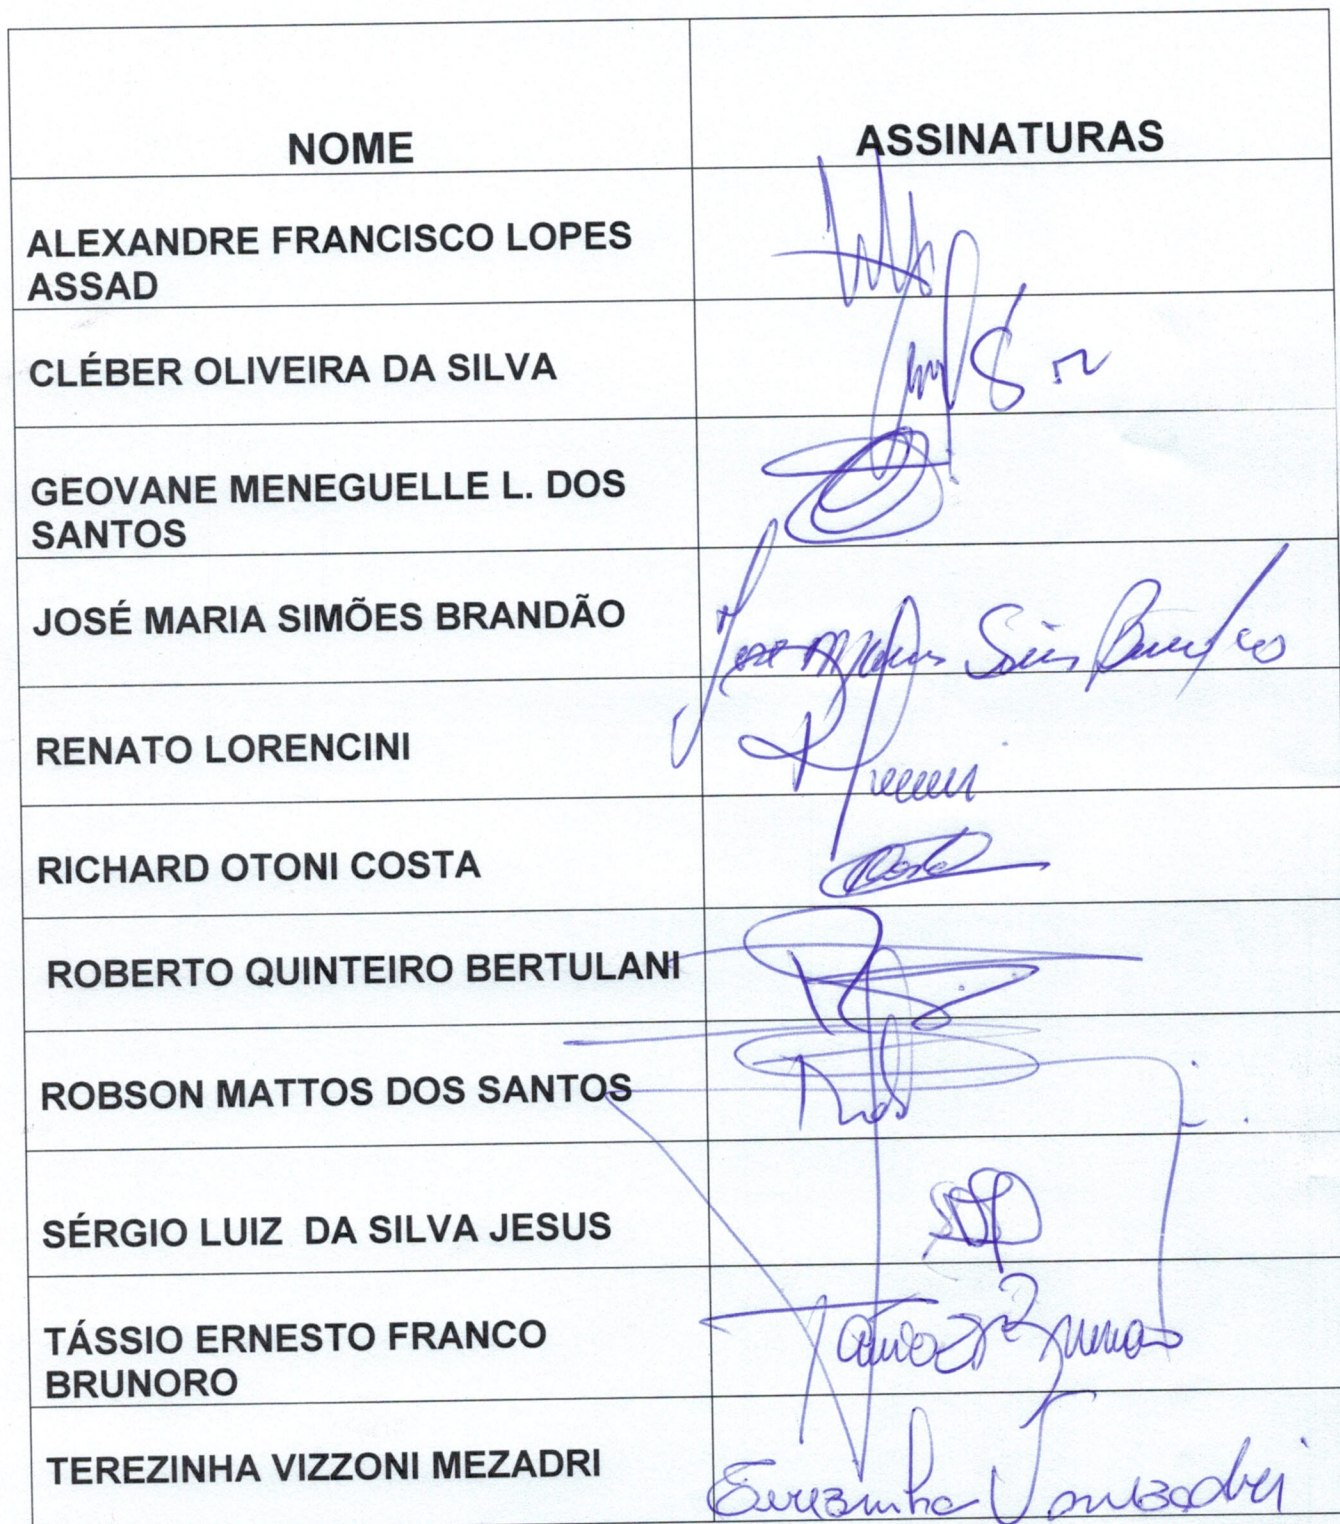 NOME
ASSINATURAS
ALEXANDRE FRANCISCO LOPES
ASSAD
CLÉBER OLIVEIRA DA SILVA
GEOVANE MENEGUELLE L. DOS
SANTOS
JOSÉ MARIA SIMÕES BRANDÃO
RENATO LORENCINI
RICHARD OTONI COSTA
Costa
ROBERTO QUINTEIRO BERTULANI
ROBSON MATTOS DOS SANTOS
SÉRGIO LUIZ  DA SILVA JESUS
TÁSSIO ERNESTO FRANCO
BRUNORO
TEREZINHA VIZZONI MEZADRI
Terezinha V Mezadri